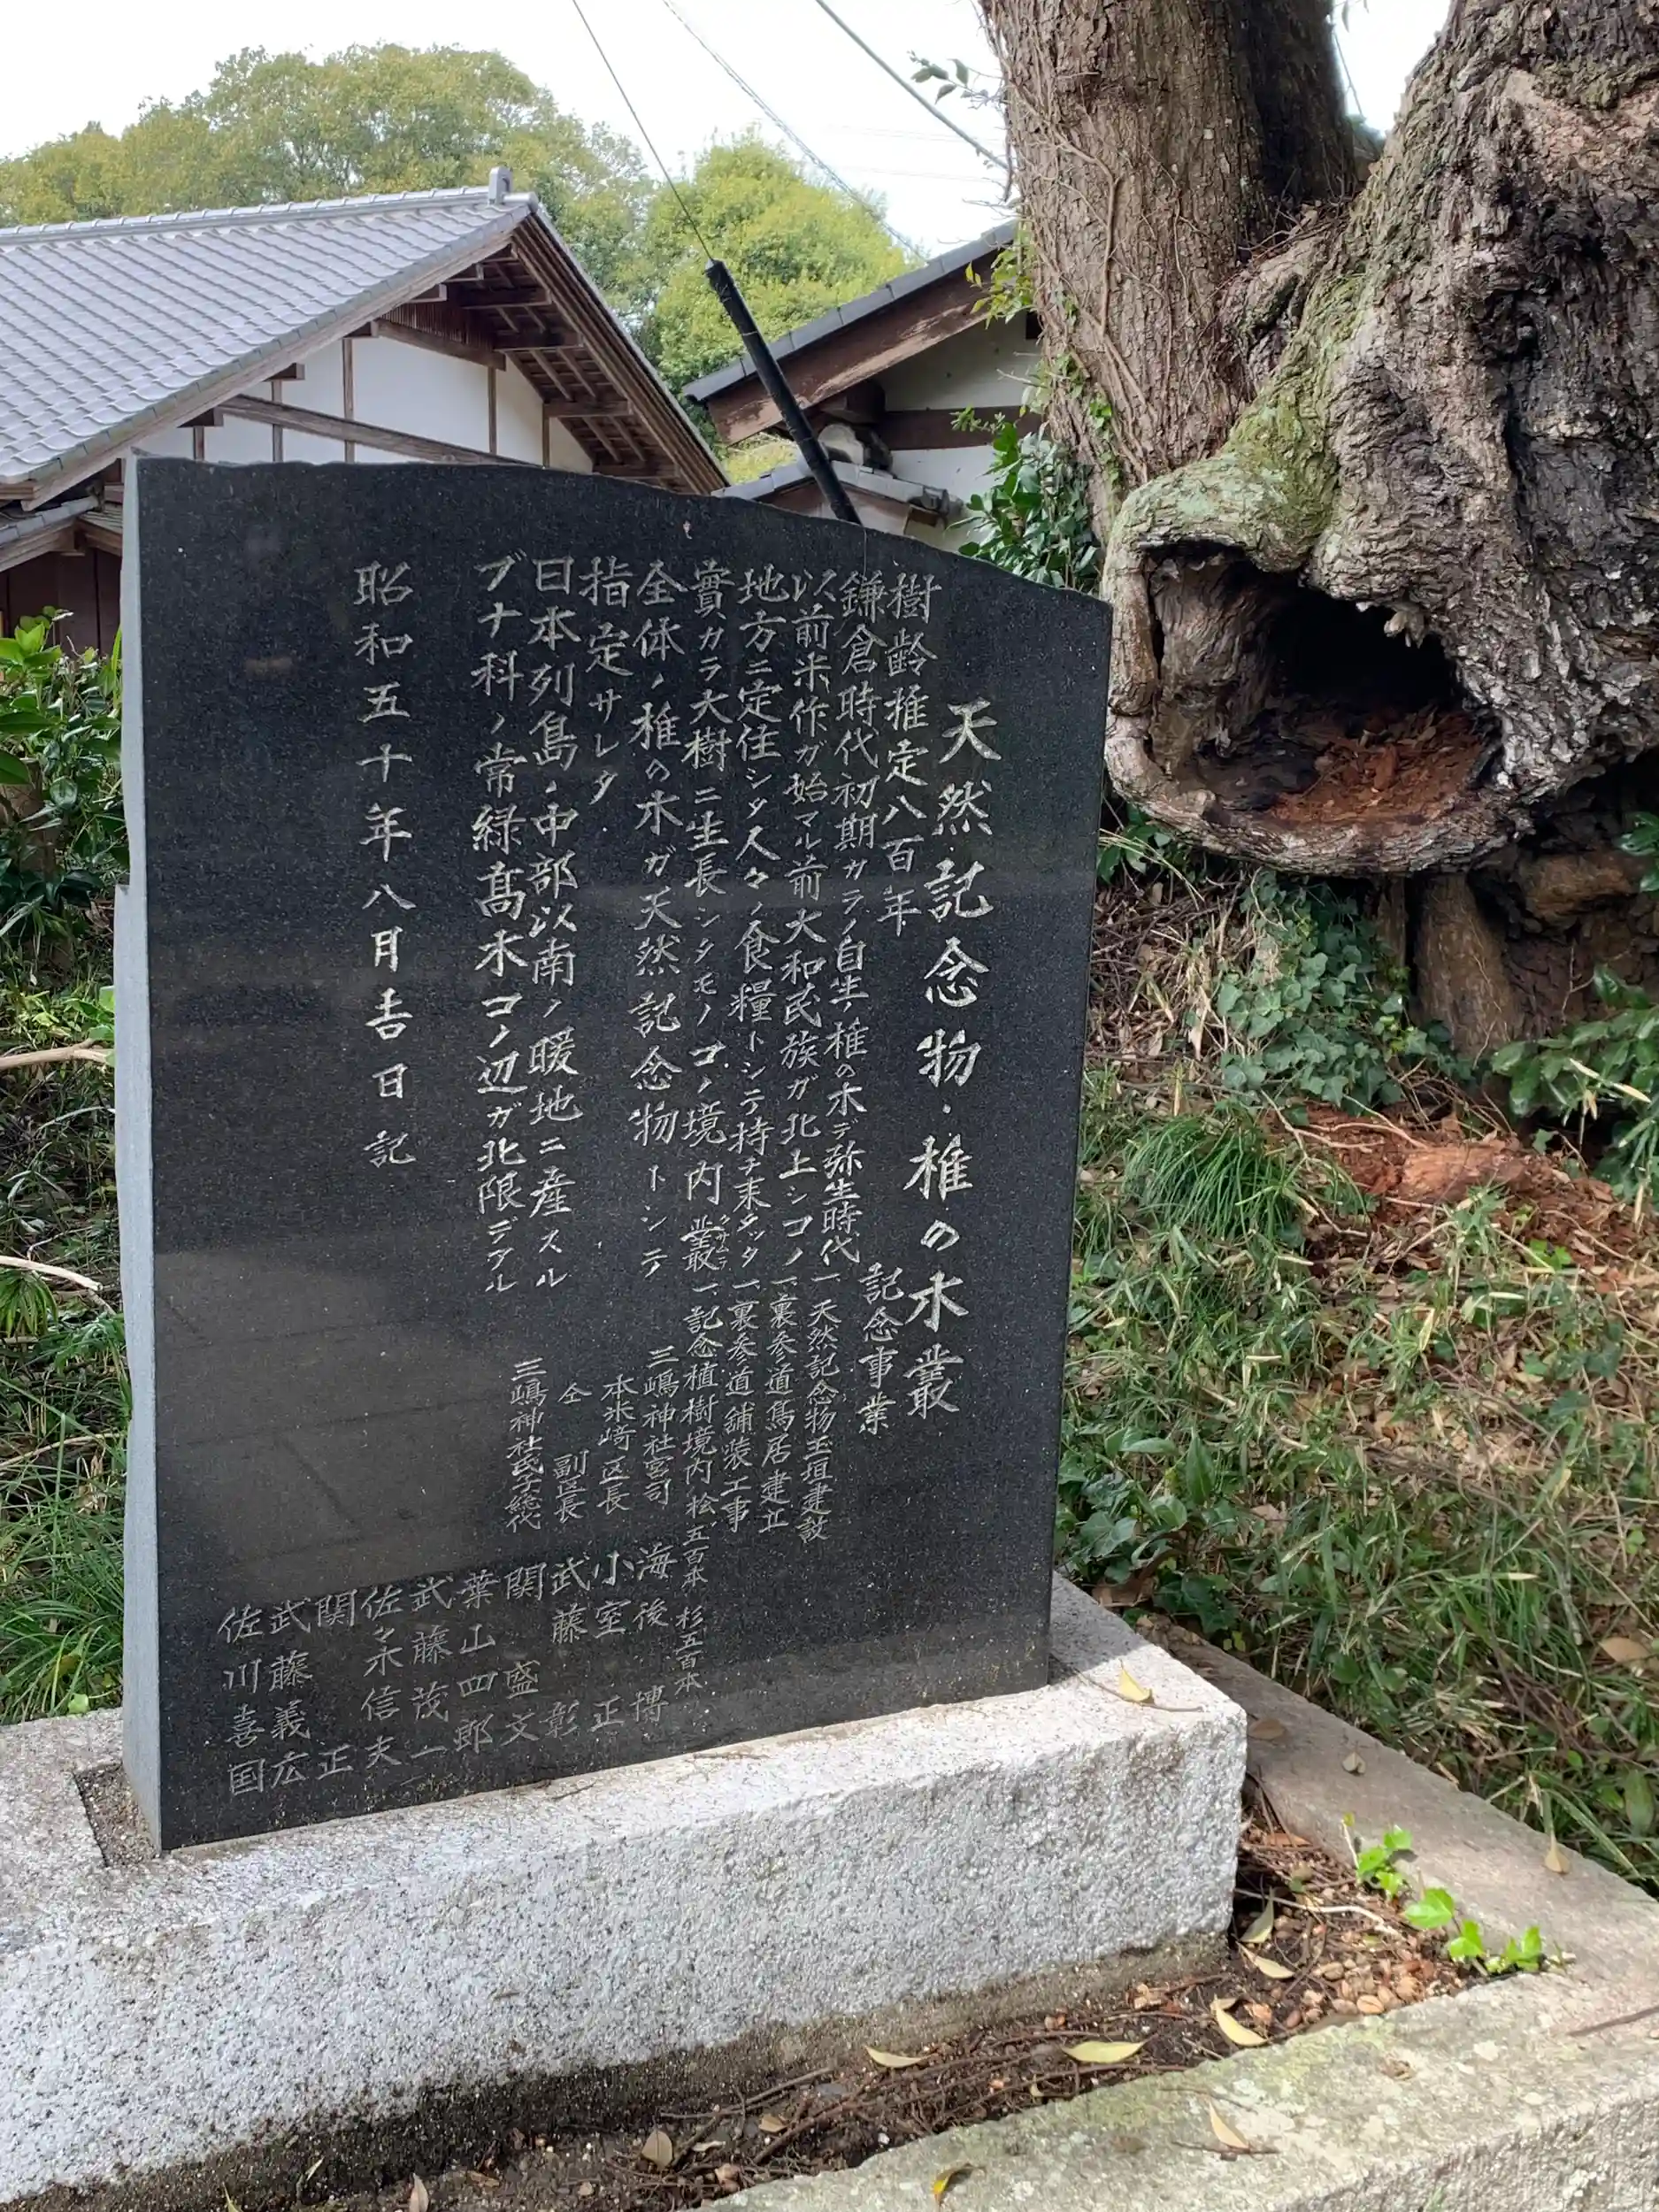 天然記念物・椎の木叢
樹齢推定八百年
鎌倉時代初期カラノ自生ノ椎の木デ弥生時代
以前米作ガ始マル前大和民族ガ北上シコノ
地方ニ定住シタ人々ノ食糧トシテ持チ来タッタ
實カラ大樹ニ生長シタモノコノ境内叢
全体ノ椎の木ガ天然記念物トシテ
指定サレタ
日本列島ノ中部以南ノ暖地ニ産スル
ブナ科ノ常緑髙木コノ辺ガ北限デアル
昭和五十年八月吉日記
記念事業
一、天然記念物玉垣建設
一、裏参道鳥居建立
一、裏参道舗装工事
一、記念植樹境内ノ桧五百本 杉五百本
三嶋神社宮司 海後 博
本米崎区長 小室 正
仝 副区長 武藤 彰
三嶋神社氏子総代 関 盛文
葉山四郎
武藤茂一
佐々木信夫
関 正
武藤義広
佐川喜国